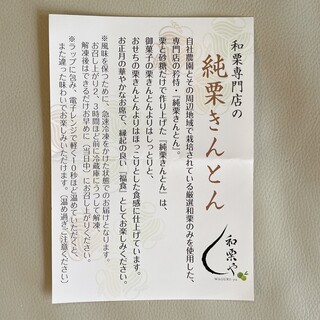 和栗専門店の
純栗きんとん
自社農園とその周辺地域で栽培されている厳選和栗のみを使用した、
専門店の矜恃・「純栗きんとん」。
栗と砂糖だけで作り上げた「純栗きんとん」は、
御菓子の栗きんとんよりはしっとりと、
おせちの栗きんとんよりはほっこりとした食感に仕上げています。
お正月の華やかなお席で、縁起の良い「福食」としてお楽しみください。
※風味を保つために、急速冷凍をかけた状態でのお届けとなります。
お召し上がり2、3時間ほど前に冷蔵庫にうつして解凍、
解凍後はできるだけお早めに(当日中)にお召し上がりください。
※ラップに包み、電子レンジで軽く10秒ほど温めていただくと、
また違った味わいでお楽しみいただけます。(温め過ぎご注意ください)
和栗や
WAGURI-YA